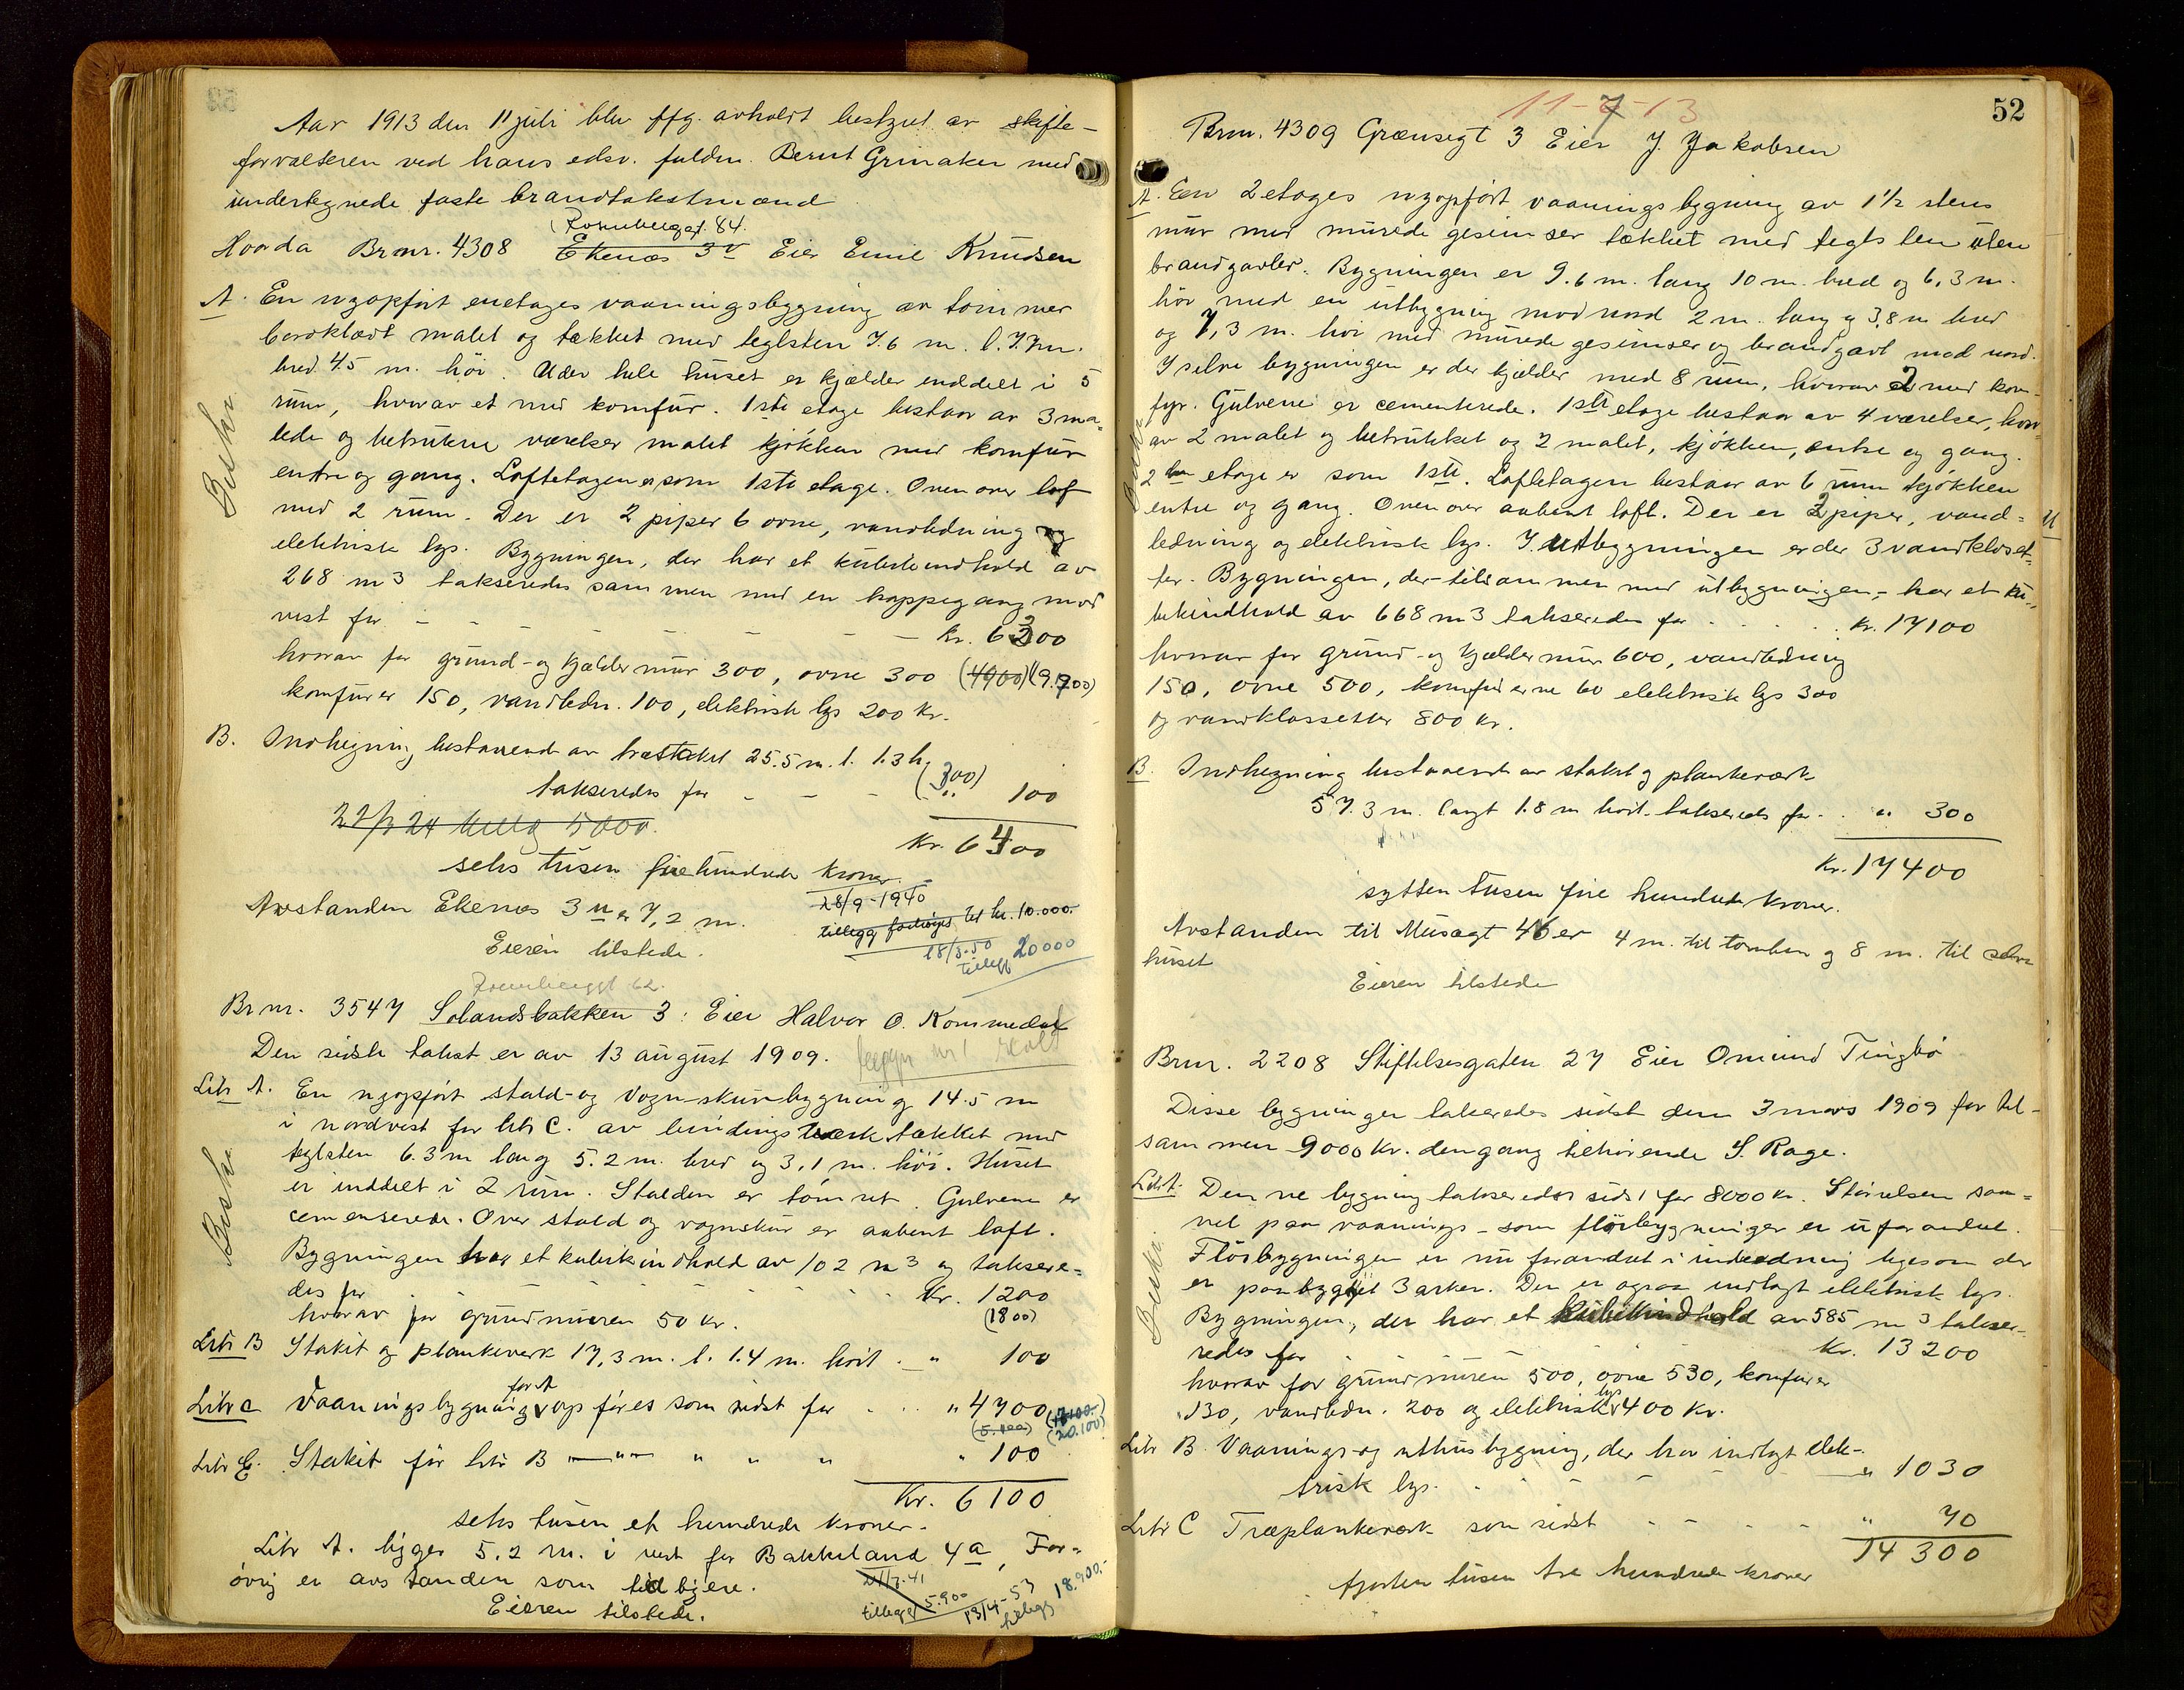 Aar 1913 den 11 juli blev ffg. avholdt besktgiet av skifte-
forvalteren ved hans edsv. fuldm. Bernt Grinaker med
undertegnede faste brandtakstmænd
Rosenberggt. 84.
Hvorda Brnr. 4308 Ekenæs 3v Eier Emil Knudsen
A. En nyopført enetages vaaningsbygning av tømmer
bordklædt malet og tækket med teglsten 7.6 m. l. 7.7 m.
bred 4.5 m. høi. Under hele huset er kjælder inddelt i 5
rum, hvorav et med komfur. 1ste etage bestaar av 3 ma-
lede og betrukne værelser malet kjøkken med komfur
entre og gang. Loftetagen er som 1ste etage. Ovenover loft
med 2 rum. Der er 2 piper 6 ovne, vandledning og
elektrisk lys. Bygningen, der har et kubikindhold av
268 m3 takseredes sammen med en trappegang mod
vest for - - - - - - - Kr. 6300
hvorav for grund- og kjældermur 300, ovne 300 (4900) (9.900)
komfurer 150, vandledn. 100, elektrisk lys 200 kr.
B. Indhegning bestaaende av træstakit 25.5 m. l. 1.3 h.
(300)
takseredes for - - - - " 100
22/3 24 tillæg 5000.
Kr. 6400
seks tusen fire hundrede kroner.
28/9-1940
Avstanden Ekenæs 3 u er 7,2 m.
tillegg forhøyet til kr. 10.000.-
Eieren tilstede.
18/3.50 tillegg 20000
Rosenberggt 62.
Brnr. 3547 Solandsbakken 3: Eier Halvor O. Kommedal
Den sidste takst er av 13 august 1909.
Litr A. En nyopført stald- og vognskurbygning 14.5 m
i nordvest for litr C. av bindingsværk tækket med
teglsten 6.3 m lang 5.2 m. bred og 3,1 m. høi. Huset
er inddelt i 2 rum. Stalden er tømret. Gulvene er
cementerede. Over stald og vognskur er aabent loft.
Bygningen har et kubikindhold av 102 m3 og taksere-
des for . . . . . . Kr. 1200
hvorav for grundmuren 50 kr. (1800)
Litr B Stakit og plankeverk 17,3 m. l. 1.4 m. høit . - " 100
Litr C Vaaningsbygning før A opføres som sidst for . . . " 4700
(5.400) (20.100)
Litr E. Stakit før litr B —"— " " " " 100
Kr. 6100
seks tusen et hundrede kroner.
Litr A. ligger 5.2 m. i vest for Bakkeland 4a, For-
øvrig er avstanden som tidligere.
Eieren tilstede.
tillegg 5.900
13/4-53 tillegg 18.900.-
Beskr.
Beskr.
52
11-7-13
Brnr. 4309 Grænsegt 3 Eier J. Jakobsen
A. En 2 etages nyopført vaaningsbygning av 1½ stens
mur med murede gesimser tækket med teglsten uten
brandgavler. Bygningen er 9.6 m. lang 10 m. bred og 6,3 m.
høi med en utbygning mod nord 2 m. lang og 3,8 m bred
og 7,3 m. høi med murede gesimser og brandgavl mod nord.
I selve bygningen er der kjælder med 8 rum, hvorav 2 med kom-
fyr. Gulvene er cementerede. 1ste etage bestaar av 4 værelser, hvor-
av 2 malet og betrukket og 2 malet, kjøkken, entre og gang.
2den etage er som 1ste. Loftetagen bestaar av 6 rum kjøkken
entre og gang. Ovenover aabent loft. Der er 2 piper, vand-
ledning og elektrisk lys. I utbygningen er der 3 vandkloset-
ter. Bygningen, der - tilsammen med utbygningen, - har et ku-
bikindhold av 668 m3 takseredes for . . . . . Kr. 17100
hvorav for grund- og kjældermur 600, vandledning
150, ovne 500, komfurerne 60 elektrisk lys 300
og vandklossetter 800 kr.
B. Indhegning bestaaende av stakit og plankeværk
57.3 m. langt 1.8 m høit. takseredes for . . " 300
Kr. 17400
sytten tusen fire hundrede kroner.
Avstanden til Musægt 46 er 4 m. til tomten og 8 m. til selve
huset
Eieren tilstede
Brnr. 2208 Stiftelsesgaten 27 Eier Omund Tingbø
Disse bygninger takseredes sidst den 3 mars 1909 for til-
sammen 9000 Kr. dengang tilhørende S. Rage.
Litr A. Denne bygning takseredes sidst for 8000 kr. Størrelsen saa-
vel paa vaanings- som fløibygninger er uforandret.
Fløibygningen er nu forandret i indredning ligesom der
er paabygget 3 arker. Der er ogsaa indlagt elektrisk lys.
Bygningen, der har et kubikindhold av 585 m3 takse-
redes for . . . . . Kr. 13200
hvorav for grundmuren 500, ovne 530, komfurer
130, vandledn. 200 og elektrisk lys 400 Kr.
Litr B. Vaanings- og uthusbygning, der har indlagt elek-
trisk lys. . . - - - " 1030
Litr C Træplankeværk som sidst - - - - " 70
14300
fjorten tusen tre hundrede kroner
Beskr.
Beskr.